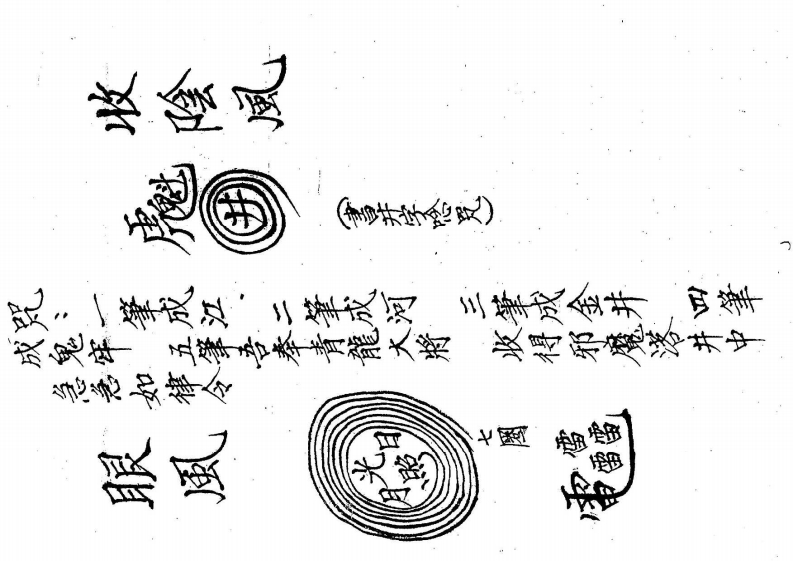 收陰風
井
(書井字唸咒)
咒:一筆成江、二筆成河 三筆成金井 四筆
成鬼牢 五筆吾奉青龍大將 收得邪魔落井中
急急如律令
眼風
日照月光
七圈
雷雷雷